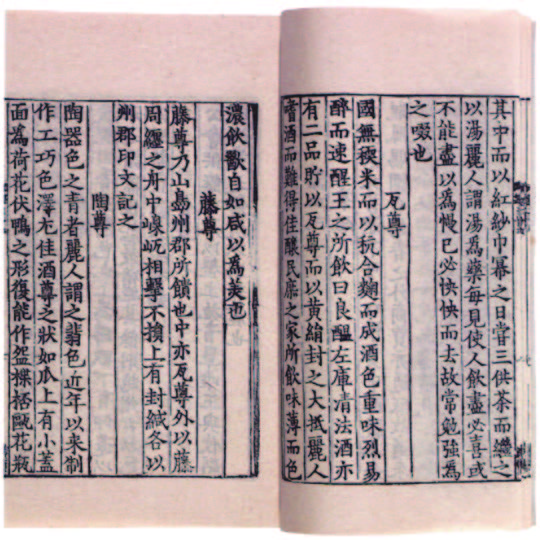 其中而以紅紗巾冪之日嘗三供茶而繼之
以湯麗人謂湯為藥每見使人飲盡必喜或
不能盡以為慢已必怏怏而去故常勉強為
之啜也
瓦尊
國無稬米而以秔合麴而成酒色重味烈易
醉而速醒王之所飲曰良醞左庫清法酒亦
有二品貯以瓦尊而以黃絹封之大抵麗人
嗜酒而難得佳釀民庶之家所飲味薄而色
濃飲歠自如咸以為美也
藤尊
藤尊乃山島州郡所饋也中亦瓦尊外以藤
周纏之舟中嵲屼相擊不損上有封緘各以
州郡印文記之
陶尊
陶器色之青者麗人謂之翡色近年以來制
作工巧色澤尤佳酒尊之狀如瓜上有小蓋
面為荷花伏鴨之形復能作盌楪桮甌花瓶